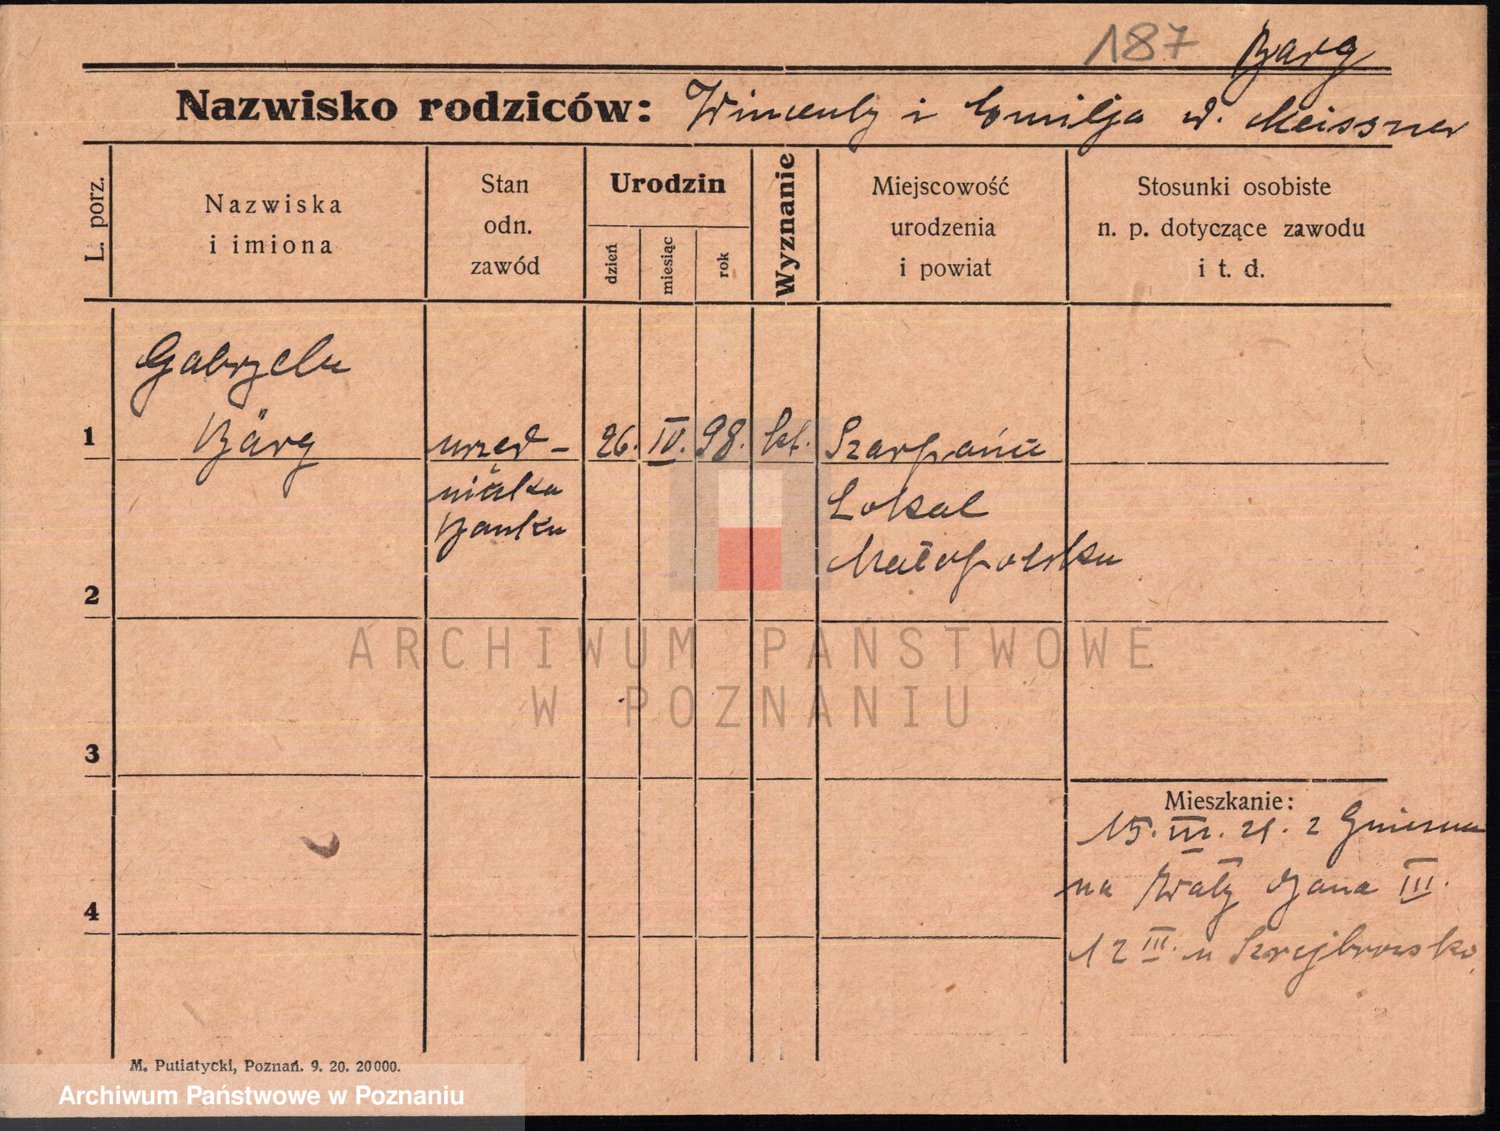 187 Barg
Nazwisko rodziców: Wincenty i Emilja d. Meissner
L. porz.
Nazwiska
i imiona
Stan
odn.
zawód
Urodzin
dzień
miesiąc
rok
Wyznanie
Miejscowość
urodzenia
i powiat
Stosunki osobiste
n. p. dotyczące zawodu
i t. d.
Gabryela
1 Bärg urzęd- 26. IV. 98. kt.
niczka
Banku
Małopolska
2
3
4
Mieszkanie:
15. III. 21. z Gniezna
na Wały Jana III.
12 III. u
M. Putiatycki, Poznań. 9. 20. 20000.
ARCHIWUM PAŃSTWOWE
W POZNANIU
Archiwum Państwowe w Poznaniu